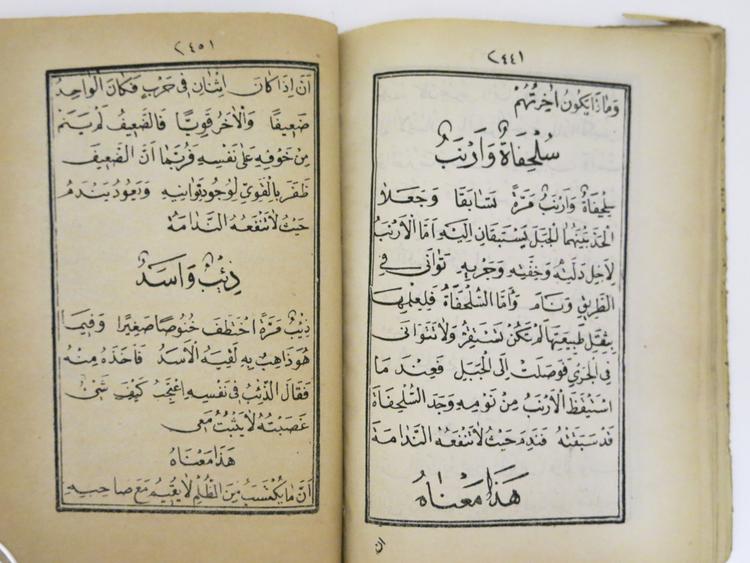 ٢٤٤١
وَمَاذَا يَكُونُ اٰخِرَتُهُمْ
سُلْحِفَاةٌ وَاَرْنَبٌ
سِلْحِفَاةٌ وَاَرْنَبٌ مَرَّةً تَسَابَقَا وَجَعَلَا
الْحَدَّ بَيْنَهُمَا الْجَبَلَ يَسْتَبِقَانِ اِلَيْهِ اَمَّا الْاَرْنَبُ
لِاَجْلِ دَلَّتِهٖ وَخِفَّتِهٖ وَجَرْيِهٖ تَوَانٰى فِى
الطَّرِيْقِ وَنَامَ وَاَمَّا السُّلْحِفَاةُ فَلِعِلْمِهَا
بِثِقَلِ طَبِيْعَتِهَا لَمْ تَكُنْ تَسْتَقِرُّ وَلَا تَتَوَانٰى
فِى الْجَرْىِ فَوَصَلَتْ اِلَى الْجَبَلِ فَعِنْدَ مَا
اسْتَيْقَظَ الْاَرْنَبُ مِنْ نَوْمِهٖ وَجَدَ السُّلْحِفَاةَ
قَدْ سَبَقَتْهُ فَنَدِمَ حَيْثُ لَا تَنْفَعُهُ النَّدَامَةُ
هٰذَا مَعْنَاهُ
ان
٢٤٥١
اَنْ اِذَا كَانَ اِثْنَانِ فِى حَرْبٍ فَكَانَ الْوَاحِدُ
ضَعِيْفًا وَالْاٰخَرُ قَوِيًّا فَالضَّعِيْفُ لَمْ يَنَمْ
مِنْ خَوْفِهٖ عَلٰى نَفْسِهٖ وَرُبَّمَا اَنَّ الضَّعِيْفَ
ظَفَرَ بِالْقَوِىِّ لِوُجُودِ تَوَانِيْهِ وَيَعُودُ يَنْدَمُ
حَيْثُ لَا تَنْفَعُهُ النَّدَامَةُ
ذِئْبٌ وَاَسَدٌ
ذِئْبٌ مَرَّةً اخْتَطَفَ خِنُّوصًا صَغِيْرًا وَفِيْمَا
هُوَ ذَاهِبٌ بِهٖ لَقِيَهُ الْاَسَدُ فَاَخَذَهُ مِنْهُ
فَقَالَ الذِّئْبُ فِى نَفْسِهٖ اَعْجَبُ كَيْفَ شَىْءٌ
غَصَبْتُهُ لَا يَثْبُتُ مَعِى
هٰذَا مَعْنَاهُ
اَنَّ مَا يُكْتَسَبُ مِنَ الظُّلْمِ لَا يُقِيْمُ مَعَ صَاحِبِهٖ